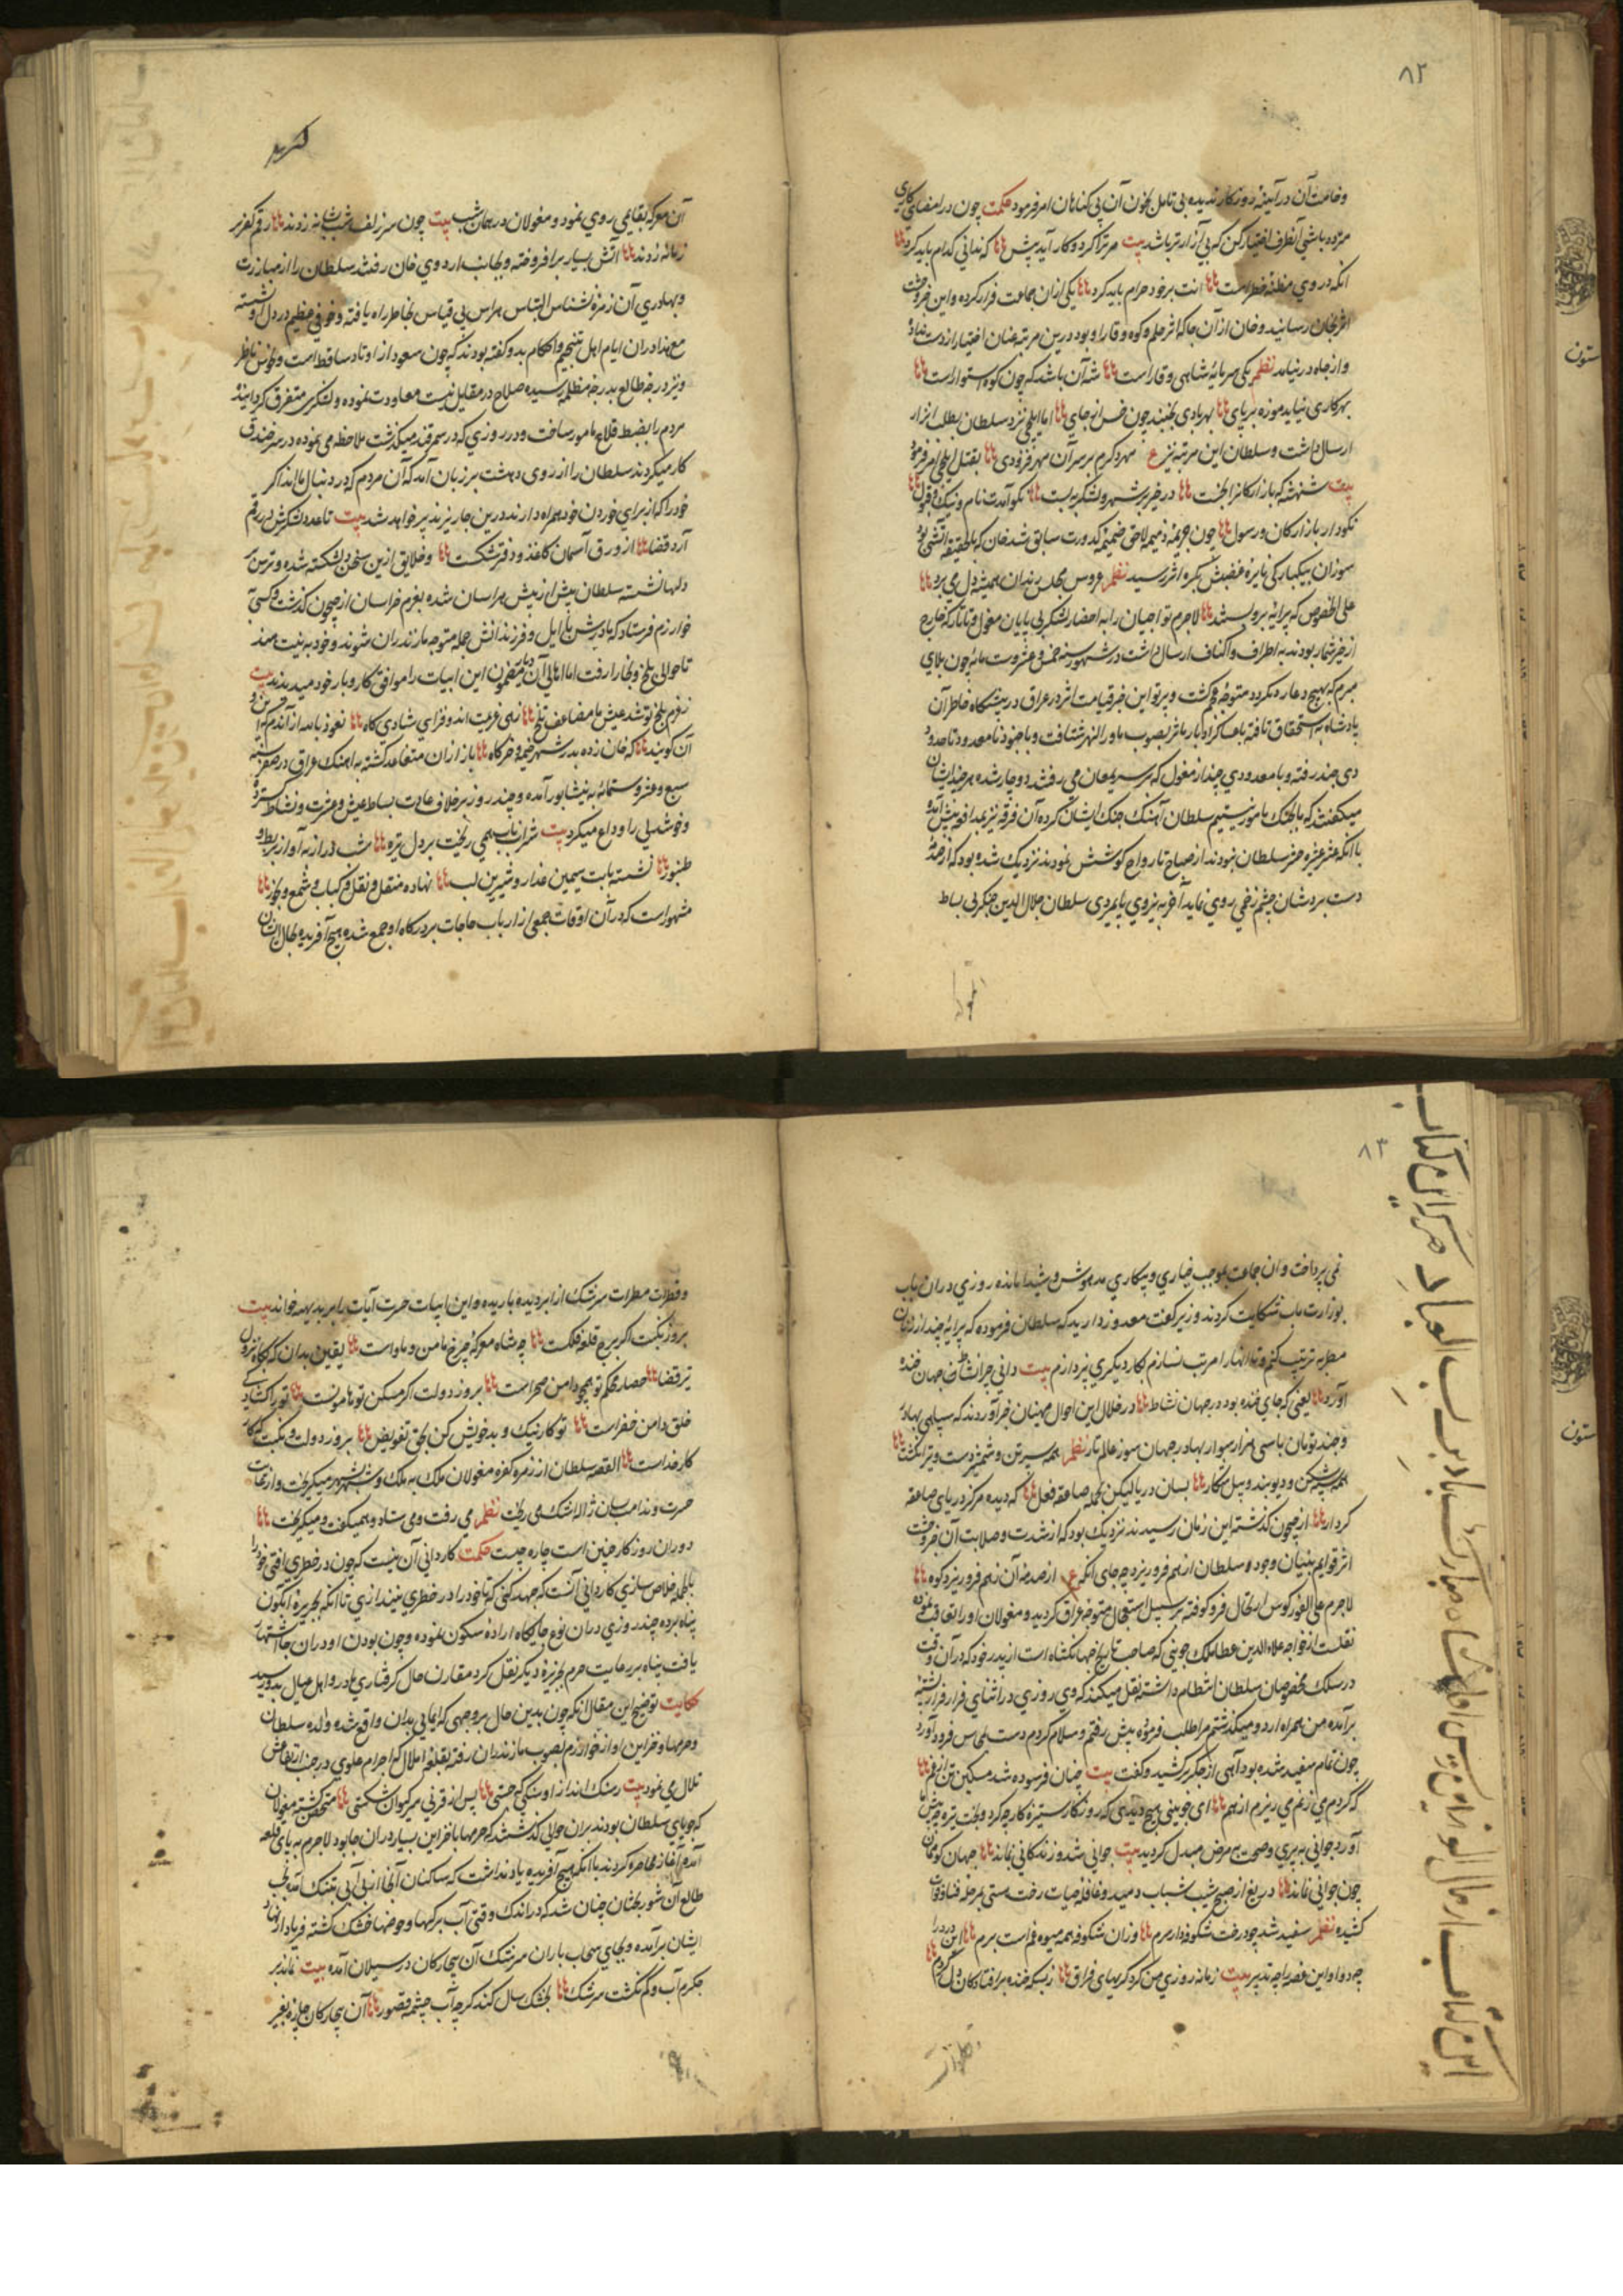 ۸۲
وخامت آن در آیینهٔ روزکار ندیده بی تامل بخون آن بی کناهان امر فرمود حکمت چون در امضای کاری
متردد باشی آنطرف اختیار کن که بی آزارتر باشد بیت هر ترا کرد و کار آید پیش که ندانی کدام باید کرد
انکه در وی مظنهٔ خطر است انت بر خود حرام باید کرد یکی ازان جماعت فرار کرده و این خبر وحشت
اثر بخان رسانید و خان از آن جا که اثر حلم و کوه وقار او بود درین مرتبه عنان اختیار از دست نداده
و از جاه در نیامد نظم یکی سرمایهٔ شاهی وقار است شه آن باشد که چون کوه استوار است
بهر کاری نیاید موزه بر پای بهر بادی نجنبد چون خس از جای اما ایلچی نزد سلطان بطلب اینزار
ارسال داشت و سلطان این مرتبه نیز ع مهر دکرم بر سر آن مهر فزودی بقتل ایلچی امر فرمود
بیت شنهشه که بازارکانرا بخست در خیر بر شهر و لشکر ببست نکو آمدت نام و نیک قبول
نکودار بازارکان و رسول چون جریمهٔ ذمیمه لاحق ضمیمه کدورت سابق شد خان که بالحقیقه آتشی بود
سوزان بیکبارکی نایرهٔ غضبش بکره اثر رسید نظم عروس مجلس رندان همیشه دل می برد
علی الخصوص که پیرایه برو بستند لاجرم تواجیان را به احضار لشکر بی پایان مغول و تاتار که خارج
از حیز شمار بودند به اطراف و اکناف ارسال داشت در شهور سنه خمس و عشر و ستمایه چون بلای
مبرم که بهیچ دعا رد نکردد متوجهٔ عجم کشت و پرتو این خبر قیامت اثر در عراق در پیشکاه خاطر آن
پادشاه به استحقاق تافته با عساکر ادبار ماثر بصوب ماورالنهر شتافت و با جنود نامعدود تا حدود
دی جند رفته و با معدودی چند از مغول که بر سر یمعان می رفتند دوچار شده هر چند ایشان
میکفتند که ما بجنک مامور نیستیم سلطان آهنک جنک ایشان کرده آن فرقه نیز بمدافعه پیش آمده
با انکه عشر عشیر حشر سلطان نبودند از صباح تا رواح کوشش نمودند نزدیک شده بود که از صدمهٔ
دست بردشان چشم زخمی روی نماید آخر به نیروی پایمردی سلطان جلال الدین منکبرنی بساط
آن معرکه
آن معرکه بقایمی روی نمود و مغولان در همان شب بیت چون سر زلف شب بشانه زدند رقم کفر بر
زمانه زدند آتش بسیار برافروخته و بجانب اردوی خان رفتند سلطان را از مبارزت
و بهادری آن زمرهٔ نشناس التباس هراس بی قیاس بخاطر راه یافته و خوفی عظیم در دل او نشسته
مع هذا دران ایام اهل تنجیم و احکام بدو کفته بودند که چون سعود از اوتاد ساقط است و نحوس ناظر
و نیز درجهٔ طالع بدرجهٔ مظلمه رسیده صلاح در مقابل نیست معاودت نموده و لشکری متفرق کردانیده
مردم را بضبط قلاع مامور ساخت و در روزی که در سمرقند میکذشت ملاحظه می نموده در سر خندق
کار میکردند سلطان را از روی دهشت بر زبان آمد که آن مردم که در دنبال ما اند اکر
خود را که از برای خوردن خود همراه دارند درین جا ریزند پر خواهد شد بیت تا عدد لشکرش در رقم
آرد قضا از ورق آسمان کاغذ و دفتر شکست و خلایق ازین سخن دلشکسته شده و ترس بر
دلها نشسته سلطان بیش از پیش هراسان شده بعزم خراسان از جیحون کذشت و کسی بآ
خوارزم فرستاد که مادرش با ایل و فرزندانش جمله متوجه مازندران شوند و خود به نیت هند
تا حوالی بلخ و بخارا رفت اما اهالی آن دیار مضمون این ابیات را موافق کار و بار خود میدیدند بیت
زعزم بلخ تو شد عیش ما مضاعف تلخ زهی عزیمت اندوه فزای شادی کاه نعوذ بالله از آندم که این و
آن کویند که خان زده بدر شهر خیمه و خرکاه باز ازان متقاعد کشته به اهنک عراق در صفر سنه
سبع و عشر و ستمائه به نیشابور آمده و چند روز بر خلاف عادت بساط عیش و عشرت و نشاط کسترد
و خوشدلی را وداع میکرد بیت شراب ناب همی ریخت بر دل تیره شب دراز به آواز بربط و
طنبور نشسته با بت سیمین عذار و شیرین لب نهاده منقل و نقل و کباب و شمع و بخور
مشهور است که در آن اوقات جمعی از ارباب حاجات بر درکاه او جمع شده هیچ آفریده بحال ایشان
۸۳
نمی پرداخت و ان جماعت بموجب خیاری و بیکاری مدهوش و شیدا مانده روزی دران باب
بوزارت ماب شکایت کردند وزیر کفت معذور دارید که سلطان فرموده که پیرایهٔ چند از زنان
مطربه ترتیب کنم و تا انها را مرتب نسازم بکار دیکری نپردازم بیت دانی چرا نشاط جهان خنده
آورد یعنی که جای خنده بود در جهان نشاط در خلال این احوال منهیان خبر آوردند که سپاهی بهادر
و چند تومان با سی هزار سوار بهادر جهان سوز عالم تاز نظم همه سیرتن و شمشیر دست و تیر انکشت
همه سپه شکن و دیوبند و پیل شکار بسان دریا لیکن بحمله صاعقه فعل که دیده مرکز دریای صاعقه
کردار از جیحون کذشته این زمان رسیدند نزدیک بود که از شدت و صلابت آن خبر وحشت
اثر قوایم بنیان وجود سلطان از هم فرو ریزد چه جای انکه ع از صدمهٔ آن ز هم فرو ریزد کوه
لاجرم علی الفور کوس ارتحال فرو کوفته بر سبیل استعجال متوجه عراق کردید و مغولان او را تعاقب نموده
نقلست از خواجه علاءالدین عطاملک جوینی که صاحب تاریخ جهانکشاه است از پدر خود که در آن وقت
در سلک مخصوصان سلطان انتظام داشته نقل میکند که وی روزی در اثنای فرار فراز پشته
برآمده من همراه اردو میکذشتم مرا طلب فرموده پیش رفتم و سلام کردم دست بلمس فرود آورد
چون تمام سفید شده بود آهی از جکر برکشید و کفت بیت چنان فرسوده شد مسکین تن از غم
که کردم می زنم می ریزم از هم ای جوینی هیچ دیدی که روزکار ستیزه کار چه کرد و بخت تیره چه پیش
آورد جوانی به پیری و صحت به مرض مبدل کردید بیت جوانی شد و زندکانی نماند جهان کو ممان
چون جوانی نماند دریغ از صبح شیب شباب دمید و قافله حیات رخت هستی بمرحله فنا و فوات
کشیده نظم سفید شد چو درخت شکوفه دار سرم وزان شکوفه همه میوه غم است برم این درد را
چه دوا و این غصه را چه تدبیر بیت زمانه روزی من کرد کریهای فراق زبسکه خنده بر افتادکان دل کردم
وقطرات
و قطرات مطرات سرشک از ابر دیده باریده و این ابیات حسرت آیات را بر بدیهه خواند بیت
بروز نکبت اکر برج قلعهٔ فلکت چه شاه معرکهٔ چرخ مامن و ماواست یقین بدان که بکاه نزول
تیر قضا حصار محکم تو همچو دامن صحراست بروز دولت اکر مسکن تو هامونست تو را کشاد
خلق دامن خضراست تو کار نیک و بد خویش کن بحق تفویض بروز دولت و نکبت که کار
کار خداست القصه سلطان از زمره کفره مغولان ملک به ملک و شهر بشهر میکریخت و از غایت
حسرت و ندامت بسان ژاله اشک می ریخت نظم می رفت و می ستاد و همیکفت و میکریخت
دوران روزکار چنین است چاره چیست حکمت کاردانی آن نیست که چون در خطری افتی خود را
بحیله خلاص سازی کاردانی آنست که جهد کنی که تا خود را در خطری نیندازی تا انکه بجزیره ابکون
پناه برده چند روزی دران نوع جایکاه اراده سکون نموده و چون بودن او دران جا اشتهار
یافت پناه بر رعایت حرم بجزیره دیکر نقل کرد مقارن حال کرفتاری مادر و اهل عیال بدو رسید
حکایت توضیح این مقال انکه چون بدین حال بروجهی که ایمایی بدان واقع شده والده سلطان
و حرمها و خزاین او از خوارزم بصوب مازندران رفته بقلعهٔ املال که اجرام علوی در جنب ارتفاعش
تلال می نمود بیت رسنک انداز او سنکی که جستی پس از قرنی سر کیوان شکستی متحصن کشته مغولان
که جویای سلطان بودند بران حوالی کذشتند که حرمها با خزاین بسیار دران جا بود لاجرم به پای قلعه
آمده آغاز محاصره کردند با انکه هیچ آفریده یاد نداشت که ساکنان آنجا از بی آبی بتنک آمده بخت
طالع آن شوربختان چنان شد که در اندک وقتی آب برکها و حوضها خشک کشته فریاد از نهاد
ایشان برآمده و بجای سحاب باران سرشک آن بیچارکان در سیلان آمده بیت نماند بر
جکرم آب و کم نکشت سرشک بخشک سال کند کرچه آب چشمه قصور آن بیچارکان چاره بغیر